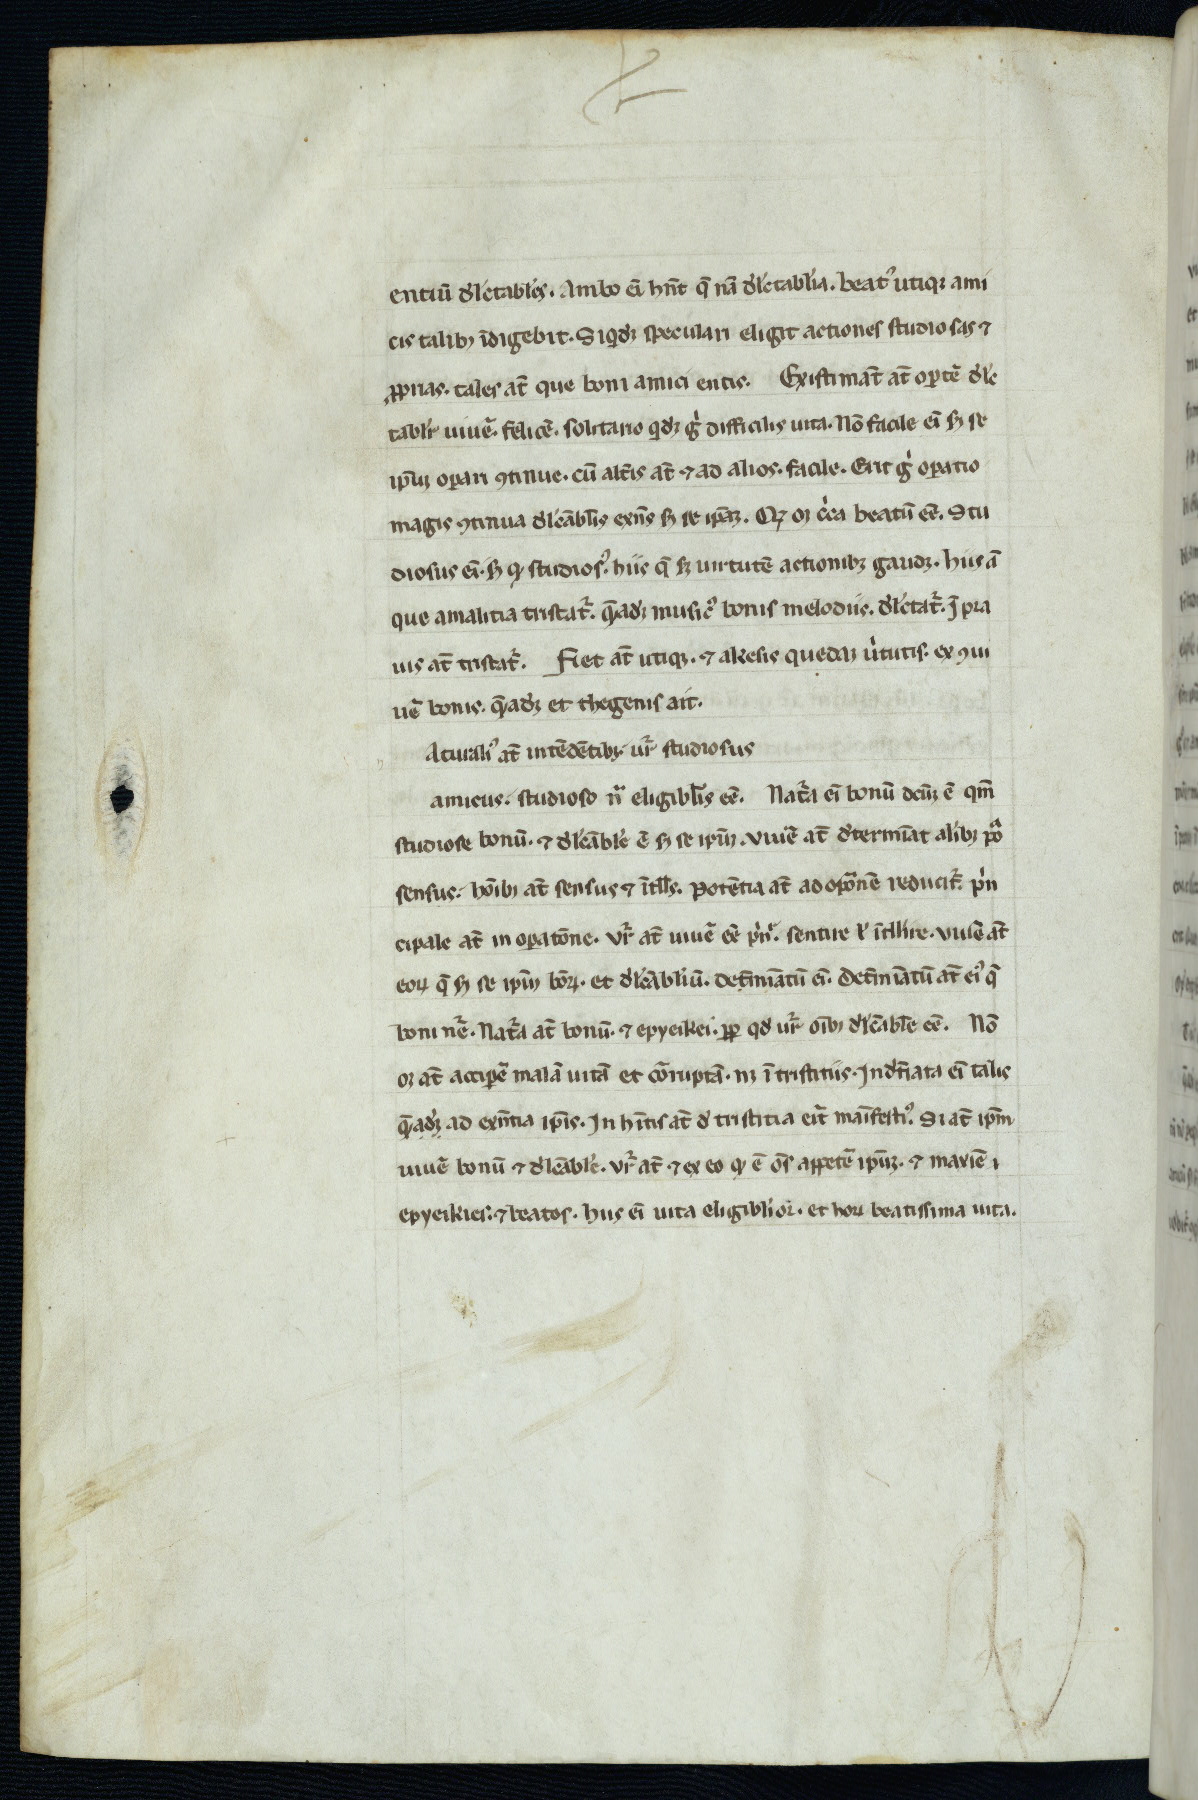 entiū dl̄etabłes. Ambo ei᷈ hn̄t q̄ nā dl̄etablia. beat᷒ utiqꝫ ami
cis talibꝫ īdigebit. Siqͥdꝫ speculari eligit actiones studiosas ⁊
ꝓprias. tales at̄ que boni amici entis. Existimāt at̄ oꝑtē dl̄e
tablr̄ uiuē᷈. felicē. solitario qͥdꝫ gͥ difficilis uita. Nō facile ei᷈ ẜm se
ip̄ꝫ oꝑari ꝯtinue. cū alt̄is at̄ ⁊ ad alios. facile. Erit gͥ oꝑatio
magis ꝯtinua dl̄cāblis exn̄s ẜm se ip̄aꝫ. Qꝫ oꝫ cͥca beatū eē. Stu
diosus ei᷈. ẜm ꝙ studios᷒. hiis q̄ ẜꝫ uirtutē actionibꝫ gaudꝫ. hiis ā
que a malitia tristat᷈. q̄adꝫ music᷒ bonis melodiis. dl̄etat᷈. ī pra
uis at̄ tristat᷈. Fiet at̄ utiqꝫ. ⁊ akesis quedaꝫ uͥtutis. ex ꝯui
uē᷈ bonis. q̄adꝫ et thegenis ait.
Actuali᷒ at̄ intēdētibꝫ. ur᷈ studiosus
amicus. studioso nͣ eligiblis eē. Nat᷈a ei᷈ bonū dcū᷈ ē qm̄
studiose bonū. ⁊ dl̄cāble ē ẜm se ip̄ꝫ. viuē᷈ at̄ dͤtermīāt alibꝫ pōͣ
sensus. hōibꝫ at̄ sensus ⁊ ītll̄s. Potētia at̄ ad oꝑōnē reducit᷈. pͥn
cipale at̄ in oꝑatōne. vr᷈ at̄ uiuē᷈ eē pͥnͬ. sentire ł ītlłire. viuē᷈ at̄
eoꝝ q̄ ẜm se ip̄ꝫ bōꝝ. et dl̄cābliū. determīātū ei᷈. determīātū at̄ ei᷒ q̄
boni nͬe. Nat᷈a at̄ bonū. ⁊ epyeikei. ꝓp̄ qd ur᷈ oībꝫ dl̄cāble eē. Nō
oꝫ at̄ acciꝑe᷈ malā uitā et cōruptā. nꝫ ī tristitiis. Indet̄iata ei᷈ talis
q̄adꝫ ad exn̄tia ip̄is. In hn̄tis at̄ dͤ tristitia erit̄ māifesti᷒. Si at̄ ip̄m
uiuē᷈ bonū ⁊ dl̄cāble. vr᷈ at̄ ⁊ ex eo ꝙ ē os̄ appetē᷈ ip̄ꝫ. ⁊ maxīē ı
epyeikies. ⁊ beatos. hiis ei᷈ uita eligiblior. et hoꝝ beatissima uita.